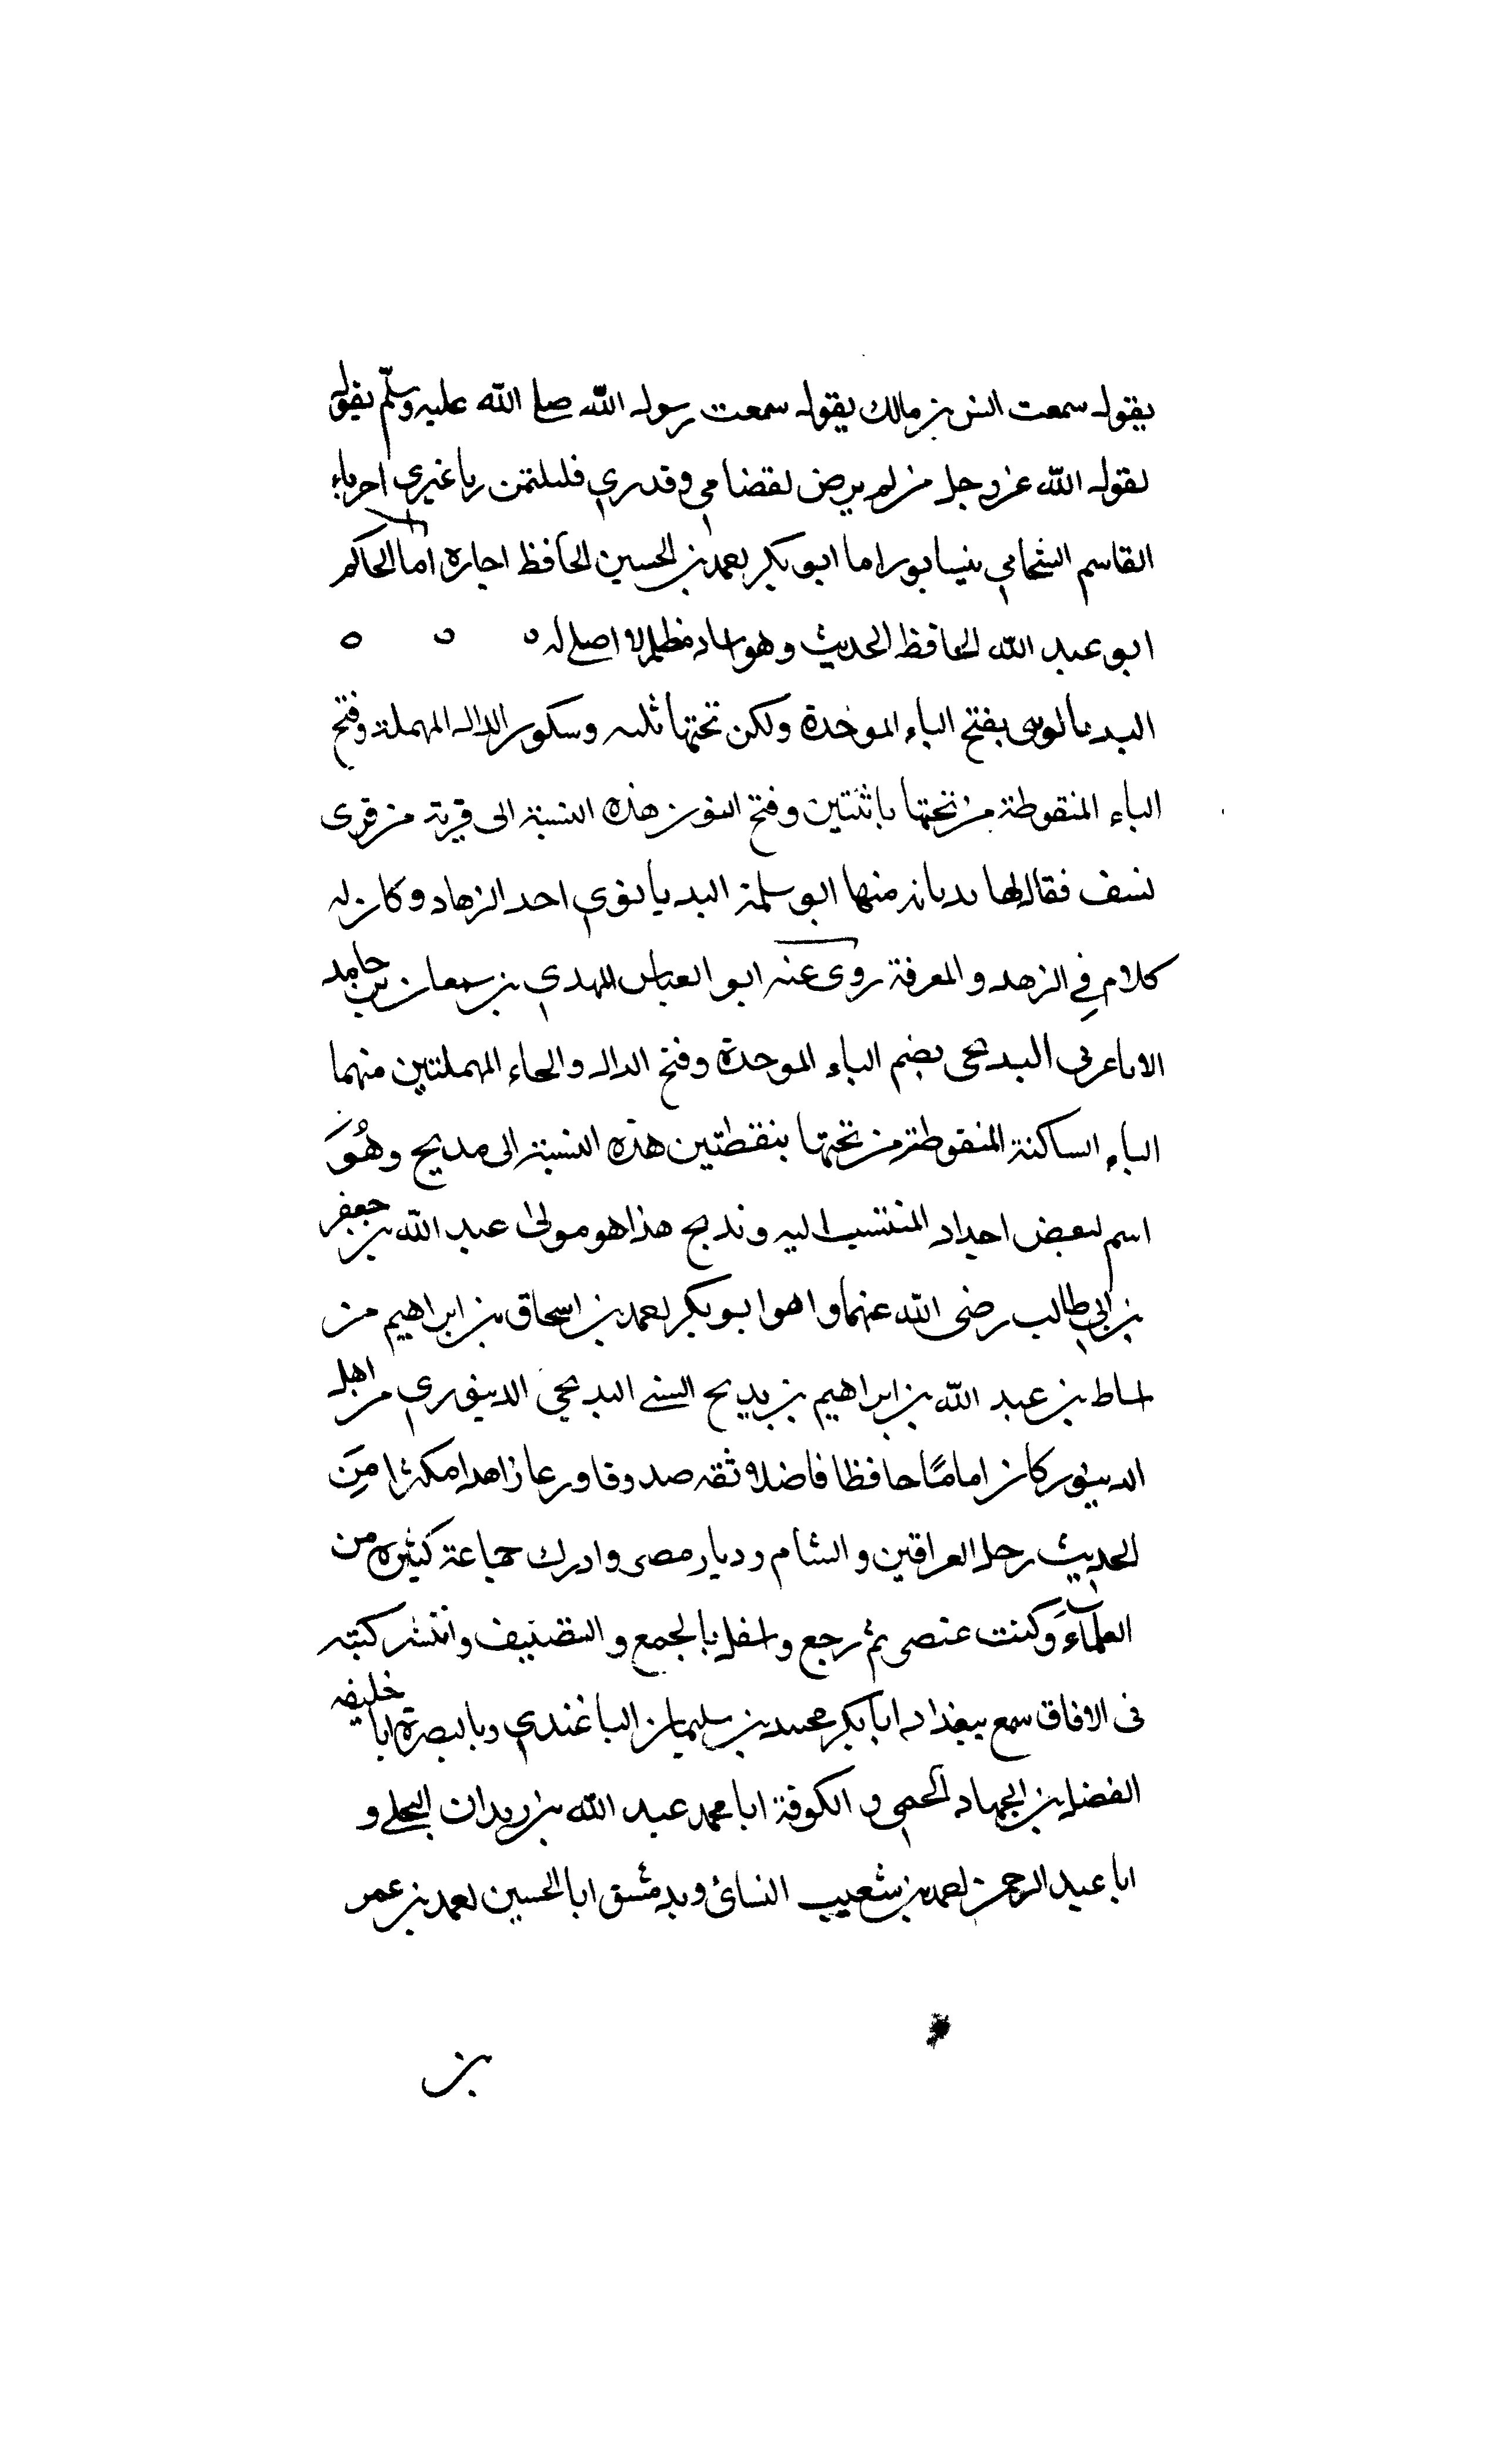 يقول سمعت انس بن مالك يقول سمعت رسول الله صلى الله عليه وسلم يقول
يقول الله عز وجل من لم يرض بقضاي وقدري فليلتمس ربا غيري اخرناه
القاسم الشحامي بنيسابور اما ابو بكر احمد بن الحسين الحافظ اجازه اما الحاكم
ابو عبد الله الحافظ الحديث وهو اسناد مظلم لا اصل له ه ه ه
البديانوى بفتح الباء الموحدة ولكن تحتها ثلثه وسكون الدال المهملة وفتح
الباء المنقوطة من تحتها باثنتين وفتح النون هذه النسبة الى قرية من قرى
نسف فقال لها بديانه منها ابو سلمة البديانوي احد الزهاد وكان له
كلام في الزهد والمعرفة روى عنه ابو العباس المهدي بن سمعان بن حامد
البديحى بضم الباء الموحدة وفتح الدال والحاء المهملتين منهما
الباء الساكنة المنقوطة من تحتها بنقطتين هذه النسبة الى مديح وهو
اسم لبعض اجداد المنتسب اليه وبديح هذا هو مولى عبد الله بن جعفر
بن ابي طالب رضى الله عنهما وا هو ابو بكر احمد بن اسحاق بن ابراهيم من
اسباط بن عبد الله بن ابراهيم بن بديح السنى البديحى الدينوري من اهل
الدينور كان اماما حافظا فاضلا ثقه صدوقا ورعا زاهدا مكثرا من
الحديث رحل العراقين والشام وديار مصر وادرك جماعة كثيره من
العلماء وكتب عنهم ثم رجع واشتغل بالجمع والتصنيف وانتشر كتبه
فى الافاق سمع ببغداد ابا بكر محمد بن سليمان الباغندي وبالبصرة ابا خليفه
الفضل بن الحباد الجمحي و الكوفة ابا محمد عبد الله بن زيدان البجلي و
ابا عبد الرحمن احمد بن شعيب النسائ وبدمشق ابا الحسين احمد بن عمر
بن